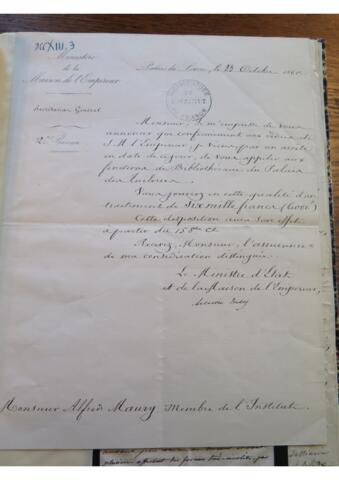 XIII. 3
Ministère
de la
Maison de l'Empereur
Palais du Louvre, le 23 Octobre 1860
Secrétariat Général
2e Division
BIBLIOTHEQUE
DE
L'INSTITUT
Monsieur, je m'empresse de vous
annoncer que conformément aux ordres de
S. M. l'Empereur, je viens, par un arrêté
en date de ce jour, de vous appeler aux
fonctions de Bibliothécaire du Palais
des Tuileries.
Vous jouirez en cette qualité d'un
traitement de Six mille francs (6000f)
Cette disposition aura son effet
à partir du 15 8bre Ct
Recevez, Monsieur, l'assurance
de ma considération distinguée.
Le Ministre d'Etat
et de la Maison de l'Empereur,
Monsieur Alfred Maury, Membre de l'Institut.